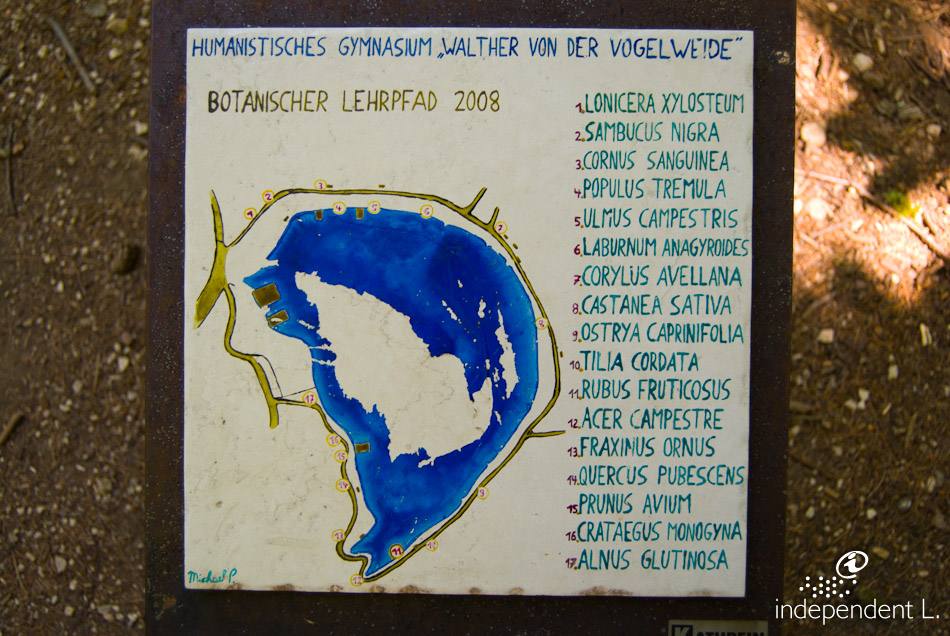 HUMANISTISCHES GYMNASIUM „WALTHER VON DER VOGELWEIDE"
BOTANISCHER LEHRPFAD 2008
1. LONICERA XYLOSTEUM
2. SAMBUCUS NIGRA
3. CORNUS SANGUINEA
4. POPULUS TREMULA
5. ULMUS CAMPESTRIS
6. LABURNUM ANAGYROIDES
7. CORYLUS AVELLANA
8. CASTANEA SATIVA
9. OSTRYA CAPRINIFOLIA
10. TILIA CORDATA
11. RUBUS FRUTICOSUS
12. ACER CAMPESTRE
13. FRAXINUS ORNUS
14. QUERCUS PUBESCENS
15. PRUNUS AVIUM
16. CRATAEGUS MONOGYNA
17. ALNUS GLUTINOSA
1
2
3
4
5
6
7
8
17
16
15
14
9
13
11
10
12
Michael P.
independent L.